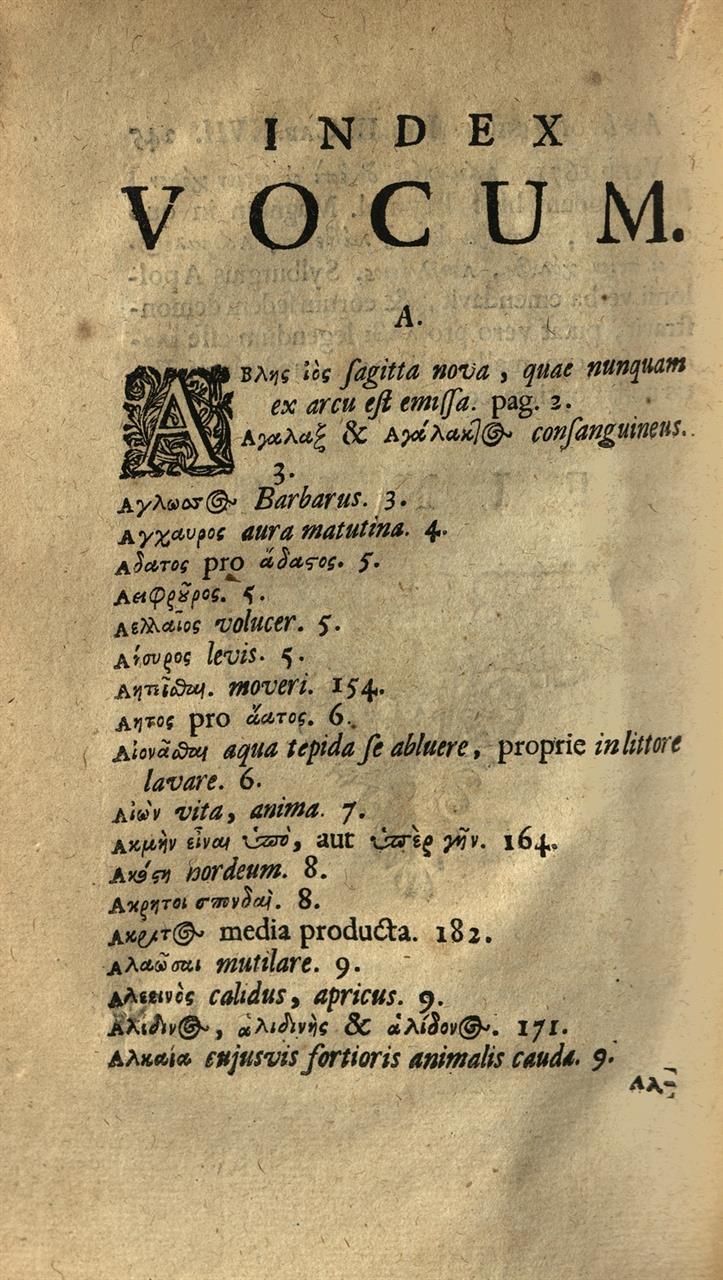 INDEX
VOCUM.
A.
ΑΒλης ἰὸς sagitta nova, quae nunquam
ex arcu est emissa. pag. 2.
Αγαλαξ & Αγάλακτος consanguineus.
3.
Αγλωσσος Barbarus. 3.
Αγχαυρος aura matutina. 4.
Αδατος pro ἄδαστος. 5.
Αειφρȣρος. 5.
Αελλαῖος volucer. 5.
Αήσυρος levis. 5.
Αητεῖσθαι. moveri. 154.
Αητος pro ἄατος. 6.
Αἰονᾶσθαι aqua tepida se abluere, proprie in littore
lavare. 6.
Αἰὼν vita, anima. 7.
Ακμὴν εἶναι ὑπὸ, aut ὑπὲρ γῆν. 164.
Ακȣστὴ hordeum. 8.
Ακρητοι σπονδαὶ. 8.
Ακριτος media producta. 182.
Αλαῶσαι mutilare. 9.
Αλεεινὸς calidus, apricus. 9.
Αλιδινος, ἀλιδινὴς & ἀλίδονος. 171.
Αλκαία cujusvis fortioris animalis cauda. 9.
Αλ-